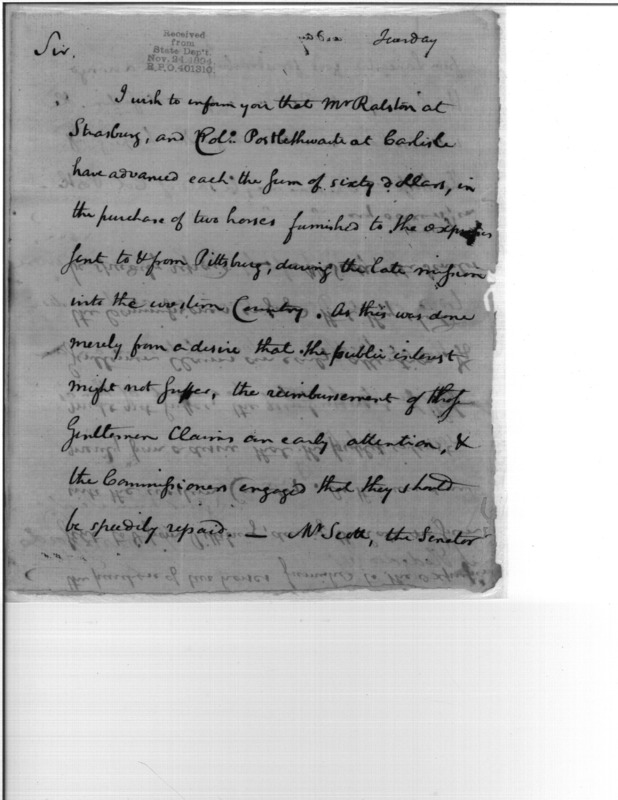 Tuesday
Sir.
Received
from
State Dep't.
Nov. 24, 1904
R.P.O. 401310.
I wish to inform you that Mr Ralston at
Strasburg, and Colo. Postlethwaite at Carlisle
have advanced each the sum of sixty dollars, in
the purchase of two horses furnished to the expresses
sent to & from Pittsburg, during the late mission
into the western Country. As this was done
merely from a desire that the public interest
might not suffer, the reimbursement of those
Gentlemen Claims an early attention, &
the Commissioners engaged that they should
be speedily repaid. — Mr Scott, the Senator